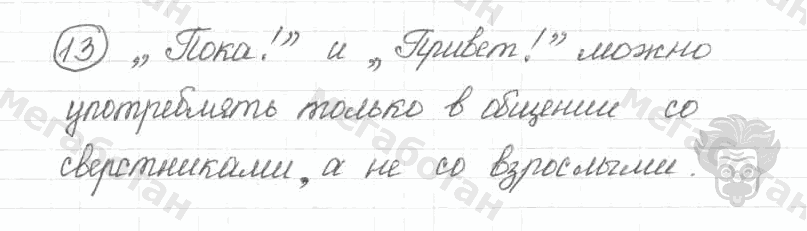 13 „Пока!” и „Привет!” можно
употреблять только в общении со
сверстниками, а не со взрослыми.
Мегаботан
Мегаботан
Мегаботан
Мегаботан